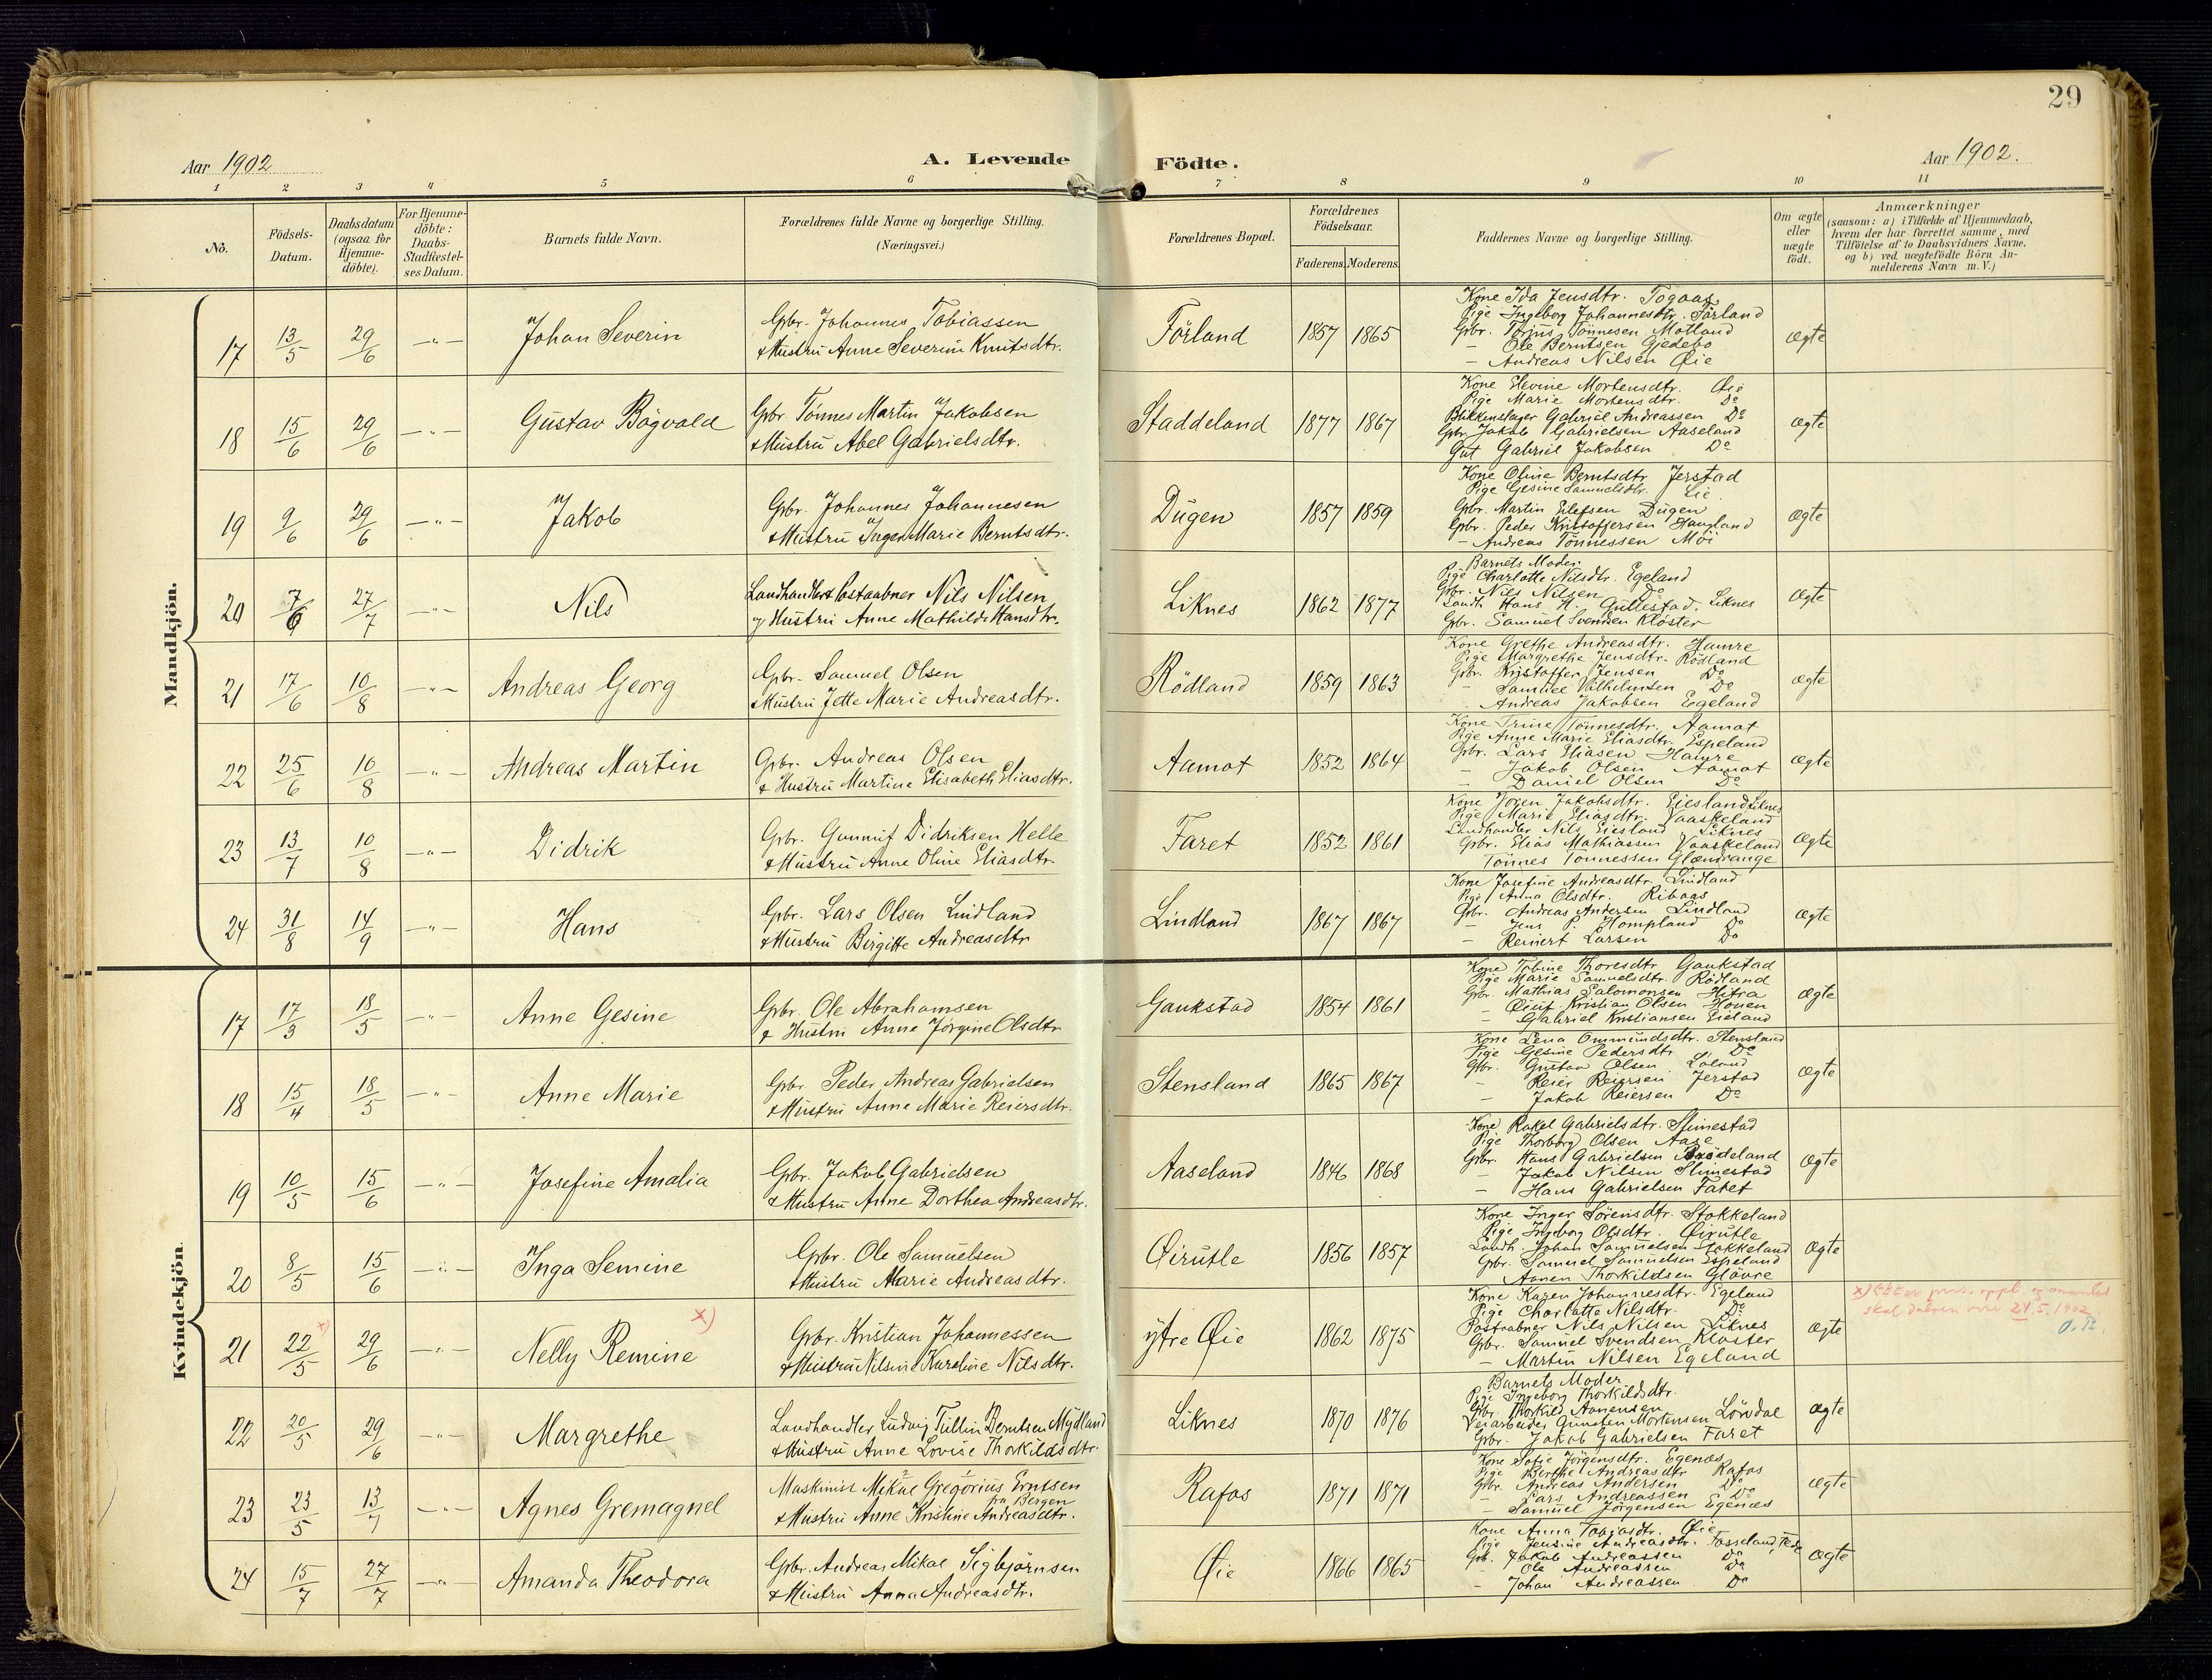 29
Aar 1902
A. Levende Fødte.
Aar 1902.
1 2 3 4 5 6 7 8 9 10 11
No. Födsels-Datum. Daabsdatum (ogsaa for Hjemme-döbte). For Hjemme-döbte: Daabs-Stadfæstel-ses Datum. Barnets fulde Navn. Forældrenes fulde Navne og borgerlige Stilling. (Næringsvei.) Forældrenes Bopæl. Forældrenes Födselsaar. Faderens. Moderens. Faddernes Navne og borgerlige Stilling. Om ægte eller uægte födt. Anmærkninger (saasom: a) i Tilfælde af Hjemmedaab, hvem der har forrettet samme, med Tilföielse af to Daabsvidners Navne. og b) ved uægtefödte Börn An-melderens Navn m. V.)
Mandkjön.
17 13/5 29/6 —"— Johan Severin
Gbr. Johannes Tobiassen
& Hustru Anne Severine Knutsdtr.
Förland 1857 1865
Kone Ida Jensdtr. Togaas
Pige Ingeborg Johannesdtr. Förland
Gbr. Torjus Tönnesen Motland
— Ole Berntsen Gjedebo
— Andreas Nilsen Øie
ægte
18 15/6 29/6 —"— Gustav Bögvald
Gbr. Tönnes Martin Jakobsen
& Hustru Abel Gabrielsdtr.
Staddeland 1877 1867
Kone Elevine Mortensdtr. Øie
Pige Marie Mortensdtr. Do
Blikkenslager Gabriel Andreassen Do
Gbr. Jakob Gabrielsen Aaseland
Gut Gabriel Jakobsen Do
ægte
19 9/6 29/6 —"— Jakob
Gbr. Johannes Johannesen
& Hustru Inger Marie Berntsdtr.
Dugen 1857 1859
Kone Oline Berntsdtr Jerstad
Pige Gesine Samuelsdtr. Lie
Gbr. Martin Eilefsen Dugen
Gbr. Peder Kristoffersen Haugland
— Andreas Tönnessen Möi
ægte
20 7/6 27/7 —"— Nils
Landhandler & Postaabner Nils Nilsen
og Hustru Anne Mathilde Hansdtr.
Liknes 1862 1877
Barnets Moder.
Pige Charlotte Nilsdtr. Egeland
Gbr. Nils Nilsen Do
Landh. Hans H. Gullestad. Liknes
Gbr. Samuel Svendsen Kloster
Ægte
21 17/6 10/8 —"— Andreas Georg
Gbr. Samuel Olsen
& Hustru Jette Marie Andreasdtr.
Rödland 1859 1863
Kone Grethe Andreasdtr. Hamre
Pige Margrethe Jensdtr. Rödland
Gbr. Kristoffer Jensen Do
Samuel Vilhelmsen Do
Andreas Jakobsen Egeland
ægte
22 25/6 10/8 —"— Andreas Martin
Gbr. Andreas Olsen
& Hustru Martine Elisabeth Eliasdtr.
Aamot 1852 1864
Kone Trine Tönnesdtr. Aamot
Pige Anne Marie Eliasdtr. Espeland
Gbr. Lars Eliasen Hamre
— Jakob Olsen Aamot
— Daniel Olsen Do
ægte
23 13/7 10/8 —"— Didrik
Gbr. Gunnuf Didriksen Helle
& Hustru Anne Oline Eliasdtr.
Faret 1852 1861
Kone Joren Jakobsdtr. Eiesland Liknes
Pige Marie Eliasdtr. Vaaskeland
Landhandler Nils Eiesland Liknes
Gbr. Elias Mathiassen Vaaskeland
Tönnes Tönnessen Glændrange
Ægte
24 31/8 14/9 —"— Hans
Gbr. Lars Olsen Lindland
& Hustru Birgitte Andreasdtr
Lindland 1867 1867
Kone Josefine Andreasdtr. Lindland
Pige Anna Olsdtr. Ribaas
Gbr. Andreas Andersen Lindland
— Jens P. Hompland Do
— Reinert Larsen Do
Ægte
Kvindekjön.
17 17/3 18/5 —"— Anne Gesine
Gbr. Ole Abrahamsen
& Hustru Anne Jörgine Olsdtr
Gaukstad 1854 1861
Kone Tobine Thoresdtr Gaukstad
Pige Marie Samuelsdtr. Rödland
Gbr. Mathias Salomonsen Hitra
Kristian Olsen Houen
— Gabriel Kristiansen Eieland
Ægte
18 15/4 18/5 —"— Anne Marie
Gbr Peder Andreas Gabrielsen
& Hustru Anne Marie Reiersdtr.
Stensland 1865 1867
Kone Lena Ommundsdtr. Stensland
Pige Gesine Pedersdtr Do
Gbr. Gustav Olsen Loland
— Reier Reiersen Jerstad
— Jakob Reiersen Do
ægte
19 10/5 15/6 —"— Josefine Amalia
Gbr. Jakob Gabrielsen
& Hustru Anne Dorthea Andreasdtr.
Aaseland 1846 1868
Kone Rakel Gabrielsdtr. Slimestad
Pige Thorborg Olsen Aase
Gbr. Hans Gabrielsen
— Jakob Nilsen Slimestad
— Hans Gabrielsen Faret
Ægte
20 8/5 15/6 —"— Inga Semine
Gbr. Ole Samuelsen
& Hustru Marie Andreasdtr.
Øirutle 1856 1857
Kone Inger Sörensdtr. Stokkeland
Pige Ingeborg Olsdtr. Øirutle
Landh. Johan Samuelsen Stokkeland
Gbr. Samuel Samuelsen Espeland
Aanen Thorkildsen Glövre
Ægte
21 22/5 x) 29/6 —"— Nelly Remine x)
Gbr. Kristian Johannessen
& Hustru Nilsine Karoline Nilsdtr.
ytre Øie 1862 1875
Kone Karen Johannesdtr. Egeland
Pige Charlotte Nilsdtr. Do
Postaabner Nils Nilsen Liknes
Gbr. Samuel Svendsen Kloster
— Martin Nilsen Egeland
Ægte
skal datoen være 24.5.1902
22 20/5 29/6 —"— Margrethe
Landhandler Ludvig Tullin Berntsen Mydland
& Hustru Anne Lovise Thorkildsdtr.
Liknes 1870 1876
Barnets Moder
Pige Ingeborg Thorkildsdtr.
Gbr. Thorkild Aanensen
Veiarbeider Gunsten Mortensen Lövdal
Gbr. Jakob Gabrielsen Faret
ægte
23 23/5 13/7 —"— Agnes Gremagnel
Maskinist Mikal Gregorius Erntsen
fra Bergen
& Hustru Anne Kristine Andreasdtr.
Rafos 1871 1871
Kone Sofie Jörgensdtr. Egenæs
Pige Berthe Andreasdtr Rafos
Gbr. Andreas Andersen Do
— Lars Andreassen Do
— Samuel Jörgensen Egenæs
ægte
24 15/7 27/7 —"— Amanda Theodora
Gbr. Andreas Mikal Sigbjörnsen
& Hustru Anna Andreasdtr.
Øie 1866 1865
Kone Anna Tobiasdtr. Øie
Pige Jensine Andreasdtr. Fosseland,
Gbr. Jakob Andreassen Do
— Ole Andreassen Do
— Johan Andreassen Do
ægte